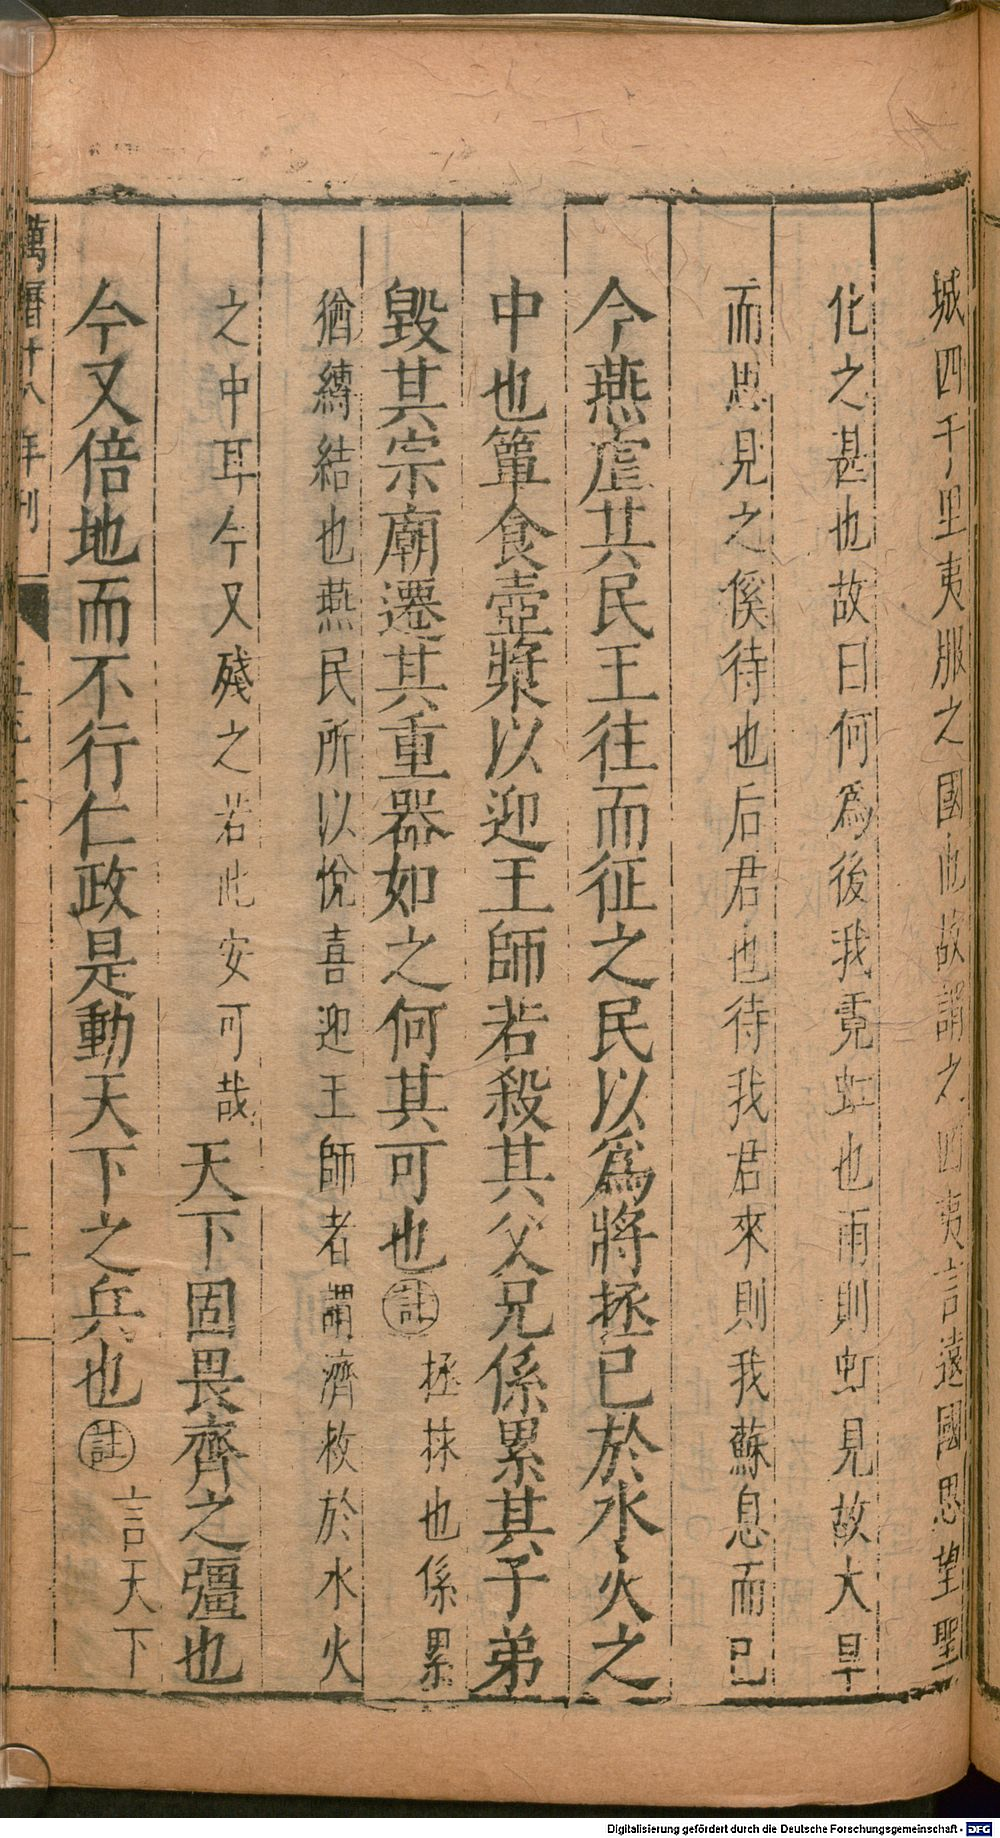 城四千里夷服之國也故謂之四夷言遠國思望聖
化之甚也故曰何爲後我霓虹也雨則虹見故大旱
而思見之徯待也后君也待我君來則我蘇息而已
今燕虐其民王往而征之民以爲將拯已於水火之
中也簞食壺漿以迎王師若殺其父兄係累其子弟
毀其宗廟遷其重器如之何其可也註拯抹也係累
猶縛結也燕民所以悅喜迎王師者謂濟救於水火
之中耳今又殘之若此安可哉天下固畏齊之彊也
今又倍地而不行仁政是動天下之兵也註言天下
萬曆十八年刊
Digitalisierung gefördert durch die Deutsche Forschungsgemeinschaft - DFG